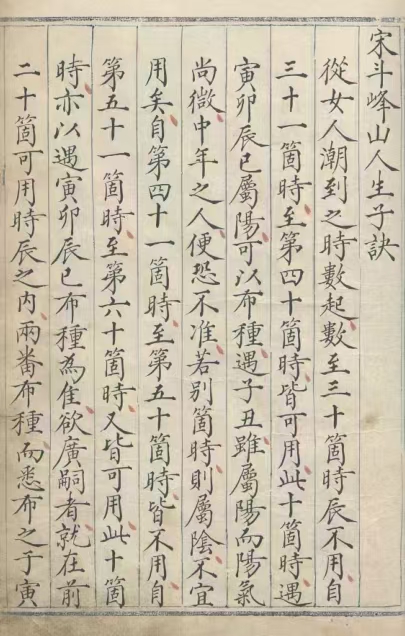 宋斗峰山人生子訣
從女人潮到之時數起數至三十箇時辰不用自
三十一箇時至第四十箇時皆可用此十箇時遇
寅卯辰巳屬陽可以布種遇子丑雖屬陽而陽氣
尚微中年之人便恐不准若別箇時則屬陰不宜
用矣自第四十一箇時至第五十箇時皆不用自
第五十一箇時至第六十箇時又皆可用此十箇
時亦以遇寅卯辰巳布種為佳欲廣嗣者就在前
二十箇可用時辰之内兩番布種而悉布之于寅